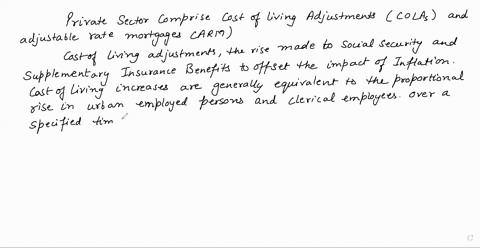 Private Sector Comprise Cost of living Adjustments (COLAs) and
adjustable rate mortgages CARM)
Cost of living adjustments, the rise made to Social security and
Supplementary Insurance Benefits to offset the impact of Inflation.
Cost of Living increases are generally equivalent to the proportional
rise in urban employed persons and clerical employees. over a
specified tim